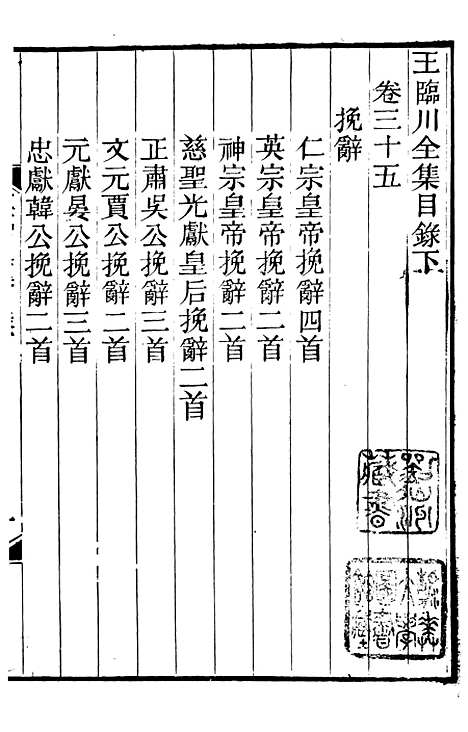 王臨川全集目錄下
卷三十五
挽辭
仁宗皇帝挽辭四首
英宗皇帝挽辭二首
神宗皇帝挽辭二首
慈聖光獻皇后挽辭二首
正肅吳公挽辭三首
文元賈公挽辭二首
元獻晏公挽辭三首
忠獻韓公挽辭二首
藏書